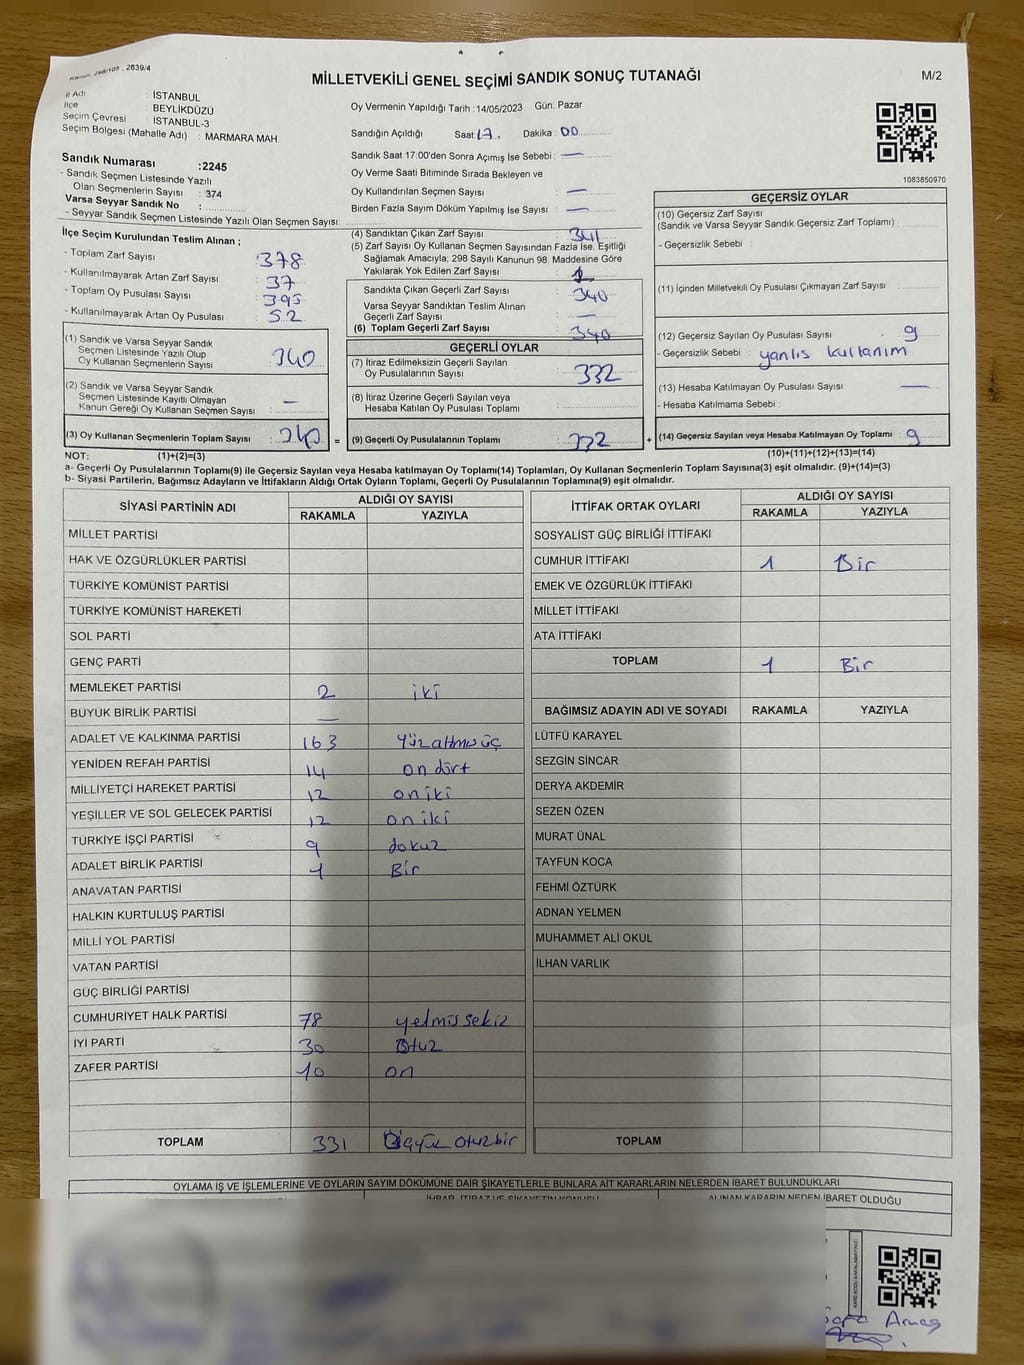 Kanun: 298/105 , 2839/4
MİLLETVEKİLİ GENEL SEÇİMİ SANDIK SONUÇ TUTANAĞI
M/2
İl Adı : İSTANBUL
İlçe : BEYLİKDÜZÜ
Seçim Çevresi : İSTANBUL-3
Seçim Bölgesi (Mahalle Adı) : MARMARA MAH.
Sandık Numarası :2245
- Sandık Seçmen Listesinde Yazılı
Olan Seçmenlerin Sayısı : 374
Varsa Seyyar Sandık No :
- Seyyar Sandık Seçmen Listesinde Yazılı Olan Seçmen Sayısı:
Oy Vermenin Yapıldığı Tarih : 14/05/2023 Gün: Pazar
Sandığın Açıldığı Saat: 17. Dakika: 00
Sandık Saat 17:00'den Sonra Açımış İse Sebebi : —
Oy Verme Saati Bitiminde Sırada Bekleyen ve
Oy Kullandırılan Seçmen Sayısı : —
Birden Fazla Sayım Döküm Yapılmış İse Sayısı : —
1083850970
İlçe Seçim Kurulundan Teslim Alınan ;
- Toplam Zarf Sayısı : 378
- Kullanılmayarak Artan Zarf Sayısı : 37
- Toplam Oy Pusulası Sayısı : 395
- Kullanılmayarak Artan Oy Pusulası : 52
(1) Sandık ve Varsa Seyyar Sandık
Seçmen Listesinde Yazılı Olup
Oy Kullanan Seçmenlerin Sayısı : 340
(2) Sandık ve Varsa Seyyar Sandık
Seçmen Listesinde Kayıtlı Olmayan
Kanun Gereği Oy Kullanan Seçmen Sayısı : —
(3) Oy Kullanan Seçmenlerin Toplam Sayısı : 340 =
(4) Sandıktan Çıkan Zarf Sayısı : 341
(5) Zarf Sayısı Oy Kullanan Seçmen Sayısından Fazla İse, Eşitliği
Sağlamak Amacıyla; 298 Sayılı Kanunun 98. Maddesine Göre
Yakılarak Yok Edilen Zarf Sayısı : 1
Sandıkta Çıkan Geçerli Zarf Sayısı : 340
Varsa Seyyar Sandıktan Teslim Alınan
Geçerli Zarf Sayısı : —
(6) Toplam Geçerli Zarf Sayısı : 340
GEÇERLİ OYLAR
(7) İtiraz Edilmeksizin Geçerli Sayılan
Oy Pusulalarının Sayısı : 332
(8) İtiraz Üzerine Geçerli Sayılan veya
Hesaba Katılan Oy Pusulası Toplamı :
(9) Geçerli Oy Pusulalarının Toplamı : 332 +
GEÇERSİZ OYLAR
(10) Geçersiz Zarf Sayısı
(Sandık ve Varsa Seyyar Sandık Geçersiz Zarf Toplamı) :
- Geçersizlik Sebebi :
(11) İçinden Milletvekili Oy Pusulası Çıkmayan Zarf Sayısı :
(12) Geçersiz Sayılan Oy Pusulası Sayısı : 9
- Geçersizlik Sebebi : yanlıs kullanım
(13) Hesaba Katılmayan Oy Pusulası Sayısı : —
- Hesaba Katılmama Sebebi :
(14) Geçersiz Sayılan veya Hesaba Katılmayan Oy Toplamı : 9
NOT: (1)+(2)=(3) (10)+(11)+(12)+(13)=(14)
a- Geçerli Oy Pusulalarının Toplamı(9) ile Geçersiz Sayılan veya Hesaba katılmayan Oy Toplamı(14) Toplamları, Oy Kullanan Seçmenlerin Toplam Sayısına(3) eşit olmalıdır. (9)+(14)=(3)
b- Siyasi Partilerin, Bağımsız Adayların ve İttifakların Aldığı Ortak Oyların Toplamı, Geçerli Oy Pusulalarının Toplamına(9) eşit olmalıdır.
SİYASİ PARTİNİN ADI ALDIĞI OY SAYISI
RAKAMLA YAZIYLA
MİLLET PARTİSİ
HAK VE ÖZGÜRLÜKLER PARTİSİ
TÜRKİYE KOMÜNİST PARTİSİ
TÜRKİYE KOMÜNİST HAREKETİ
SOL PARTİ
GENÇ PARTİ
MEMLEKET PARTİSİ 2 iki
BÜYÜK BİRLİK PARTİSİ —
ADALET VE KALKINMA PARTİSİ 163 Yüzaltmısüç
YENİDEN REFAH PARTİSİ 14 on dört
MİLLİYETÇİ HAREKET PARTİSİ 12 oniki
YEŞİLLER VE SOL GELECEK PARTİSİ 12 oniki
TÜRKİYE İŞÇİ PARTİSİ 9 dokuz
ADALET BİRLİK PARTİSİ 1 Bir
ANAVATAN PARTİSİ
HALKIN KURTULUŞ PARTİSİ
MİLLİ YOL PARTİSİ
VATAN PARTİSİ
GÜÇ BİRLİĞİ PARTİSİ
CUMHURİYET HALK PARTİSİ 78 yetmissekiz
İYİ PARTİ 30 Otuz
ZAFER PARTİSİ 10 on
TOPLAM 331 Üçyüz otuzbir
İTTİFAK ORTAK OYLARI ALDIĞI OY SAYISI
RAKAMLA YAZIYLA
SOSYALİST GÜÇ BİRLİĞİ İTTİFAKI
CUMHUR İTTİFAKI 1 Bir
EMEK VE ÖZGÜRLÜK İTTİFAKI
MİLLET İTTİFAKI
ATA İTTİFAKI
TOPLAM 1 Bir
BAĞIMSIZ ADAYIN ADI VE SOYADI RAKAMLA YAZIYLA
LÜTFÜ KARAYEL
SEZGİN SİNCAR
DERYA AKDEMİR
SEZEN ÖZEN
MURAT ÜNAL
TAYFUN KOCA
FEHMİ ÖZTÜRK
ADNAN YELMEN
MUHAMMET ALİ OKUL
İLHAN VARLIK
TOPLAM
OYLAMA İŞ VE İŞLEMLERİNE VE OYLARIN SAYIM DÖKÜMÜNE DAİR ŞİKAYETLERLE BUNLARA AİT KARARLARIN NELERDEN İBARET BULUNDUKLARI
İHBAR, İTİRAZ VE ŞİKAYETİN KONUSU
ALINAN KARARIN NEDEN İBARET OLDUĞU
KAREKODU KARALAMAYINIZ